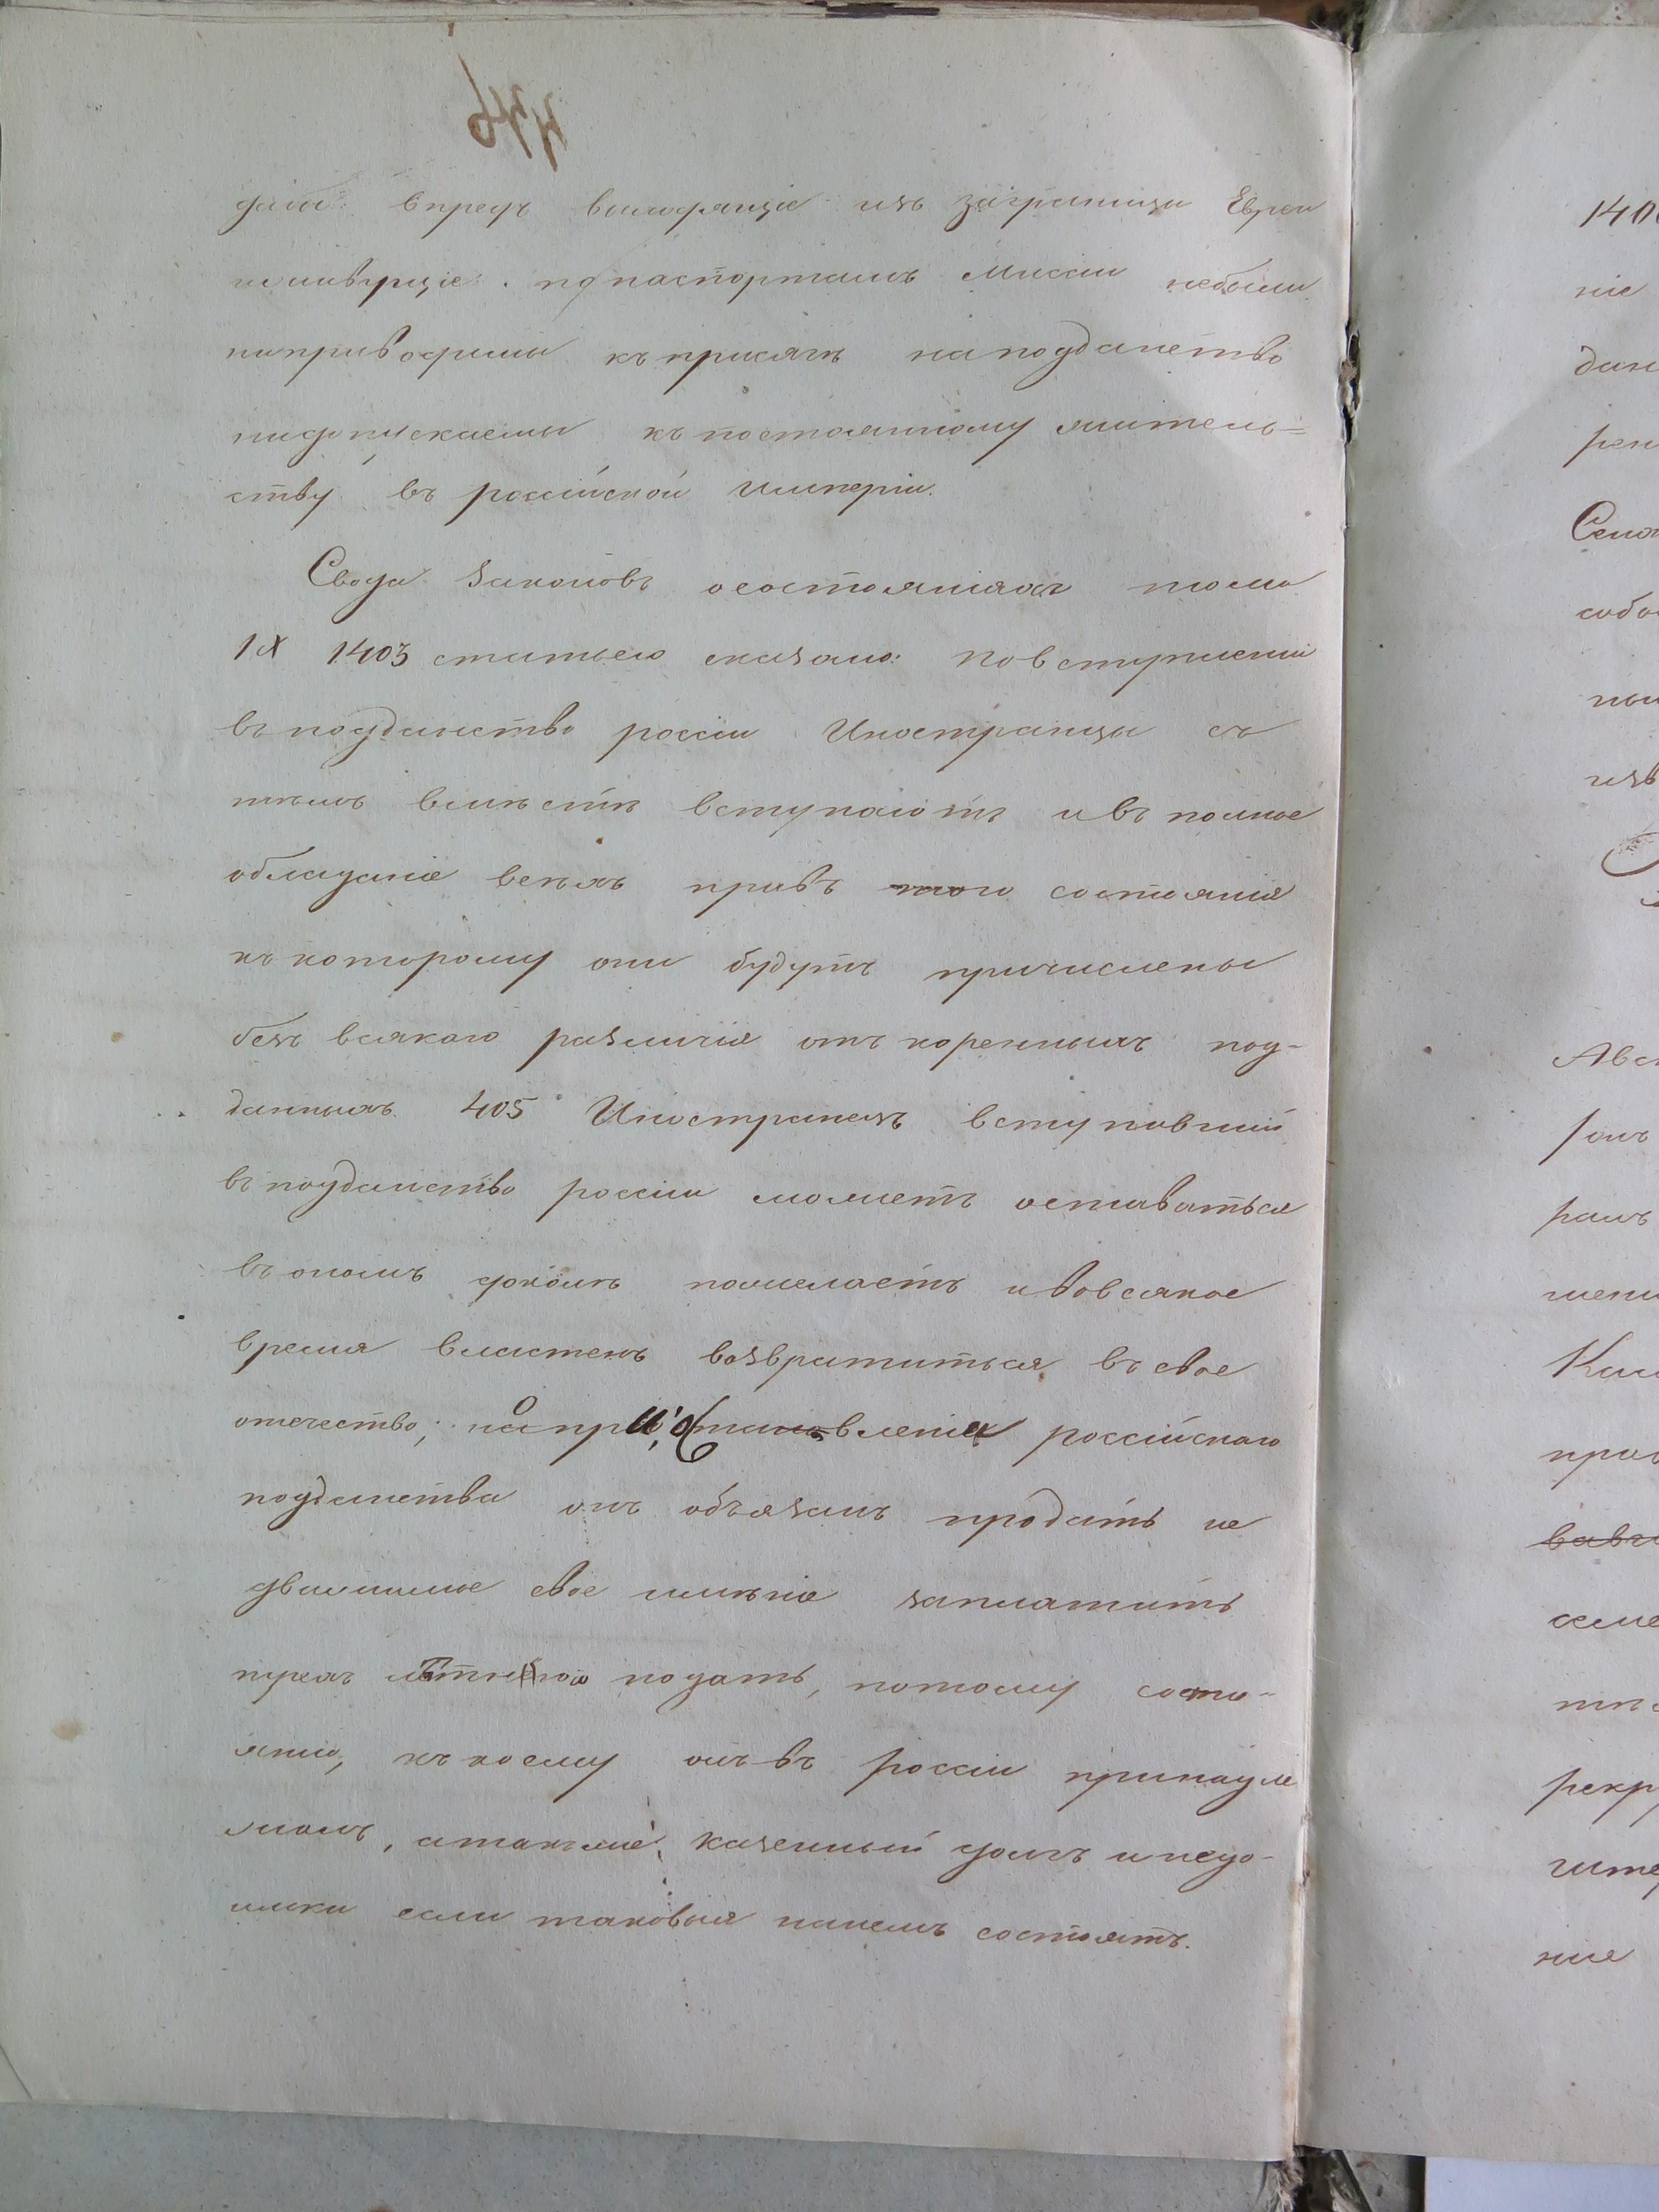 дабы впредь выходящіе изъ заграницы Евреи
неимѣющіе по паспортамъ Миссіи небыли
ниприводимы къ присягѣ на подданство
нидопускаемы къ постоянному житель=
ству въ россійской Имперіи.
Свода Законовъ о состояніяхъ тома
IX 1403 статьею сказано: По вступленіи
въ подданство россіи Иностранцы съ
тѣмъ вмѣстѣ вступаютъ и въ полное
обладаніе всѣхъ правъ того состоянія
къ которому они будутъ причислены
безъ всякаго различія отъ коренныхъ под-
данныхъ. 405 Иностранецъ вступившій
въ подданство россіи можетъ оставаться
въ ономъ доколѣ пожелаетъ и вовсякое
время властенъ возвратиться въ свое
отечество; но при оставленіи россійскаго
подданства онъ обязанъ продать не
движимое свое имѣніе заплатить
трехъ лѣтнюю подать, потому состо-
янію, къ коему онъ въ россіи принадле
жалъ, атакже казенный долгъ и недо-
имки если таковыя нанемъ состоятъ.
1400
ніе
дан
рен
Сено
собо
ны
изъ
Авс
рамъ
шені
пра
семе
рекр
ште
ніе